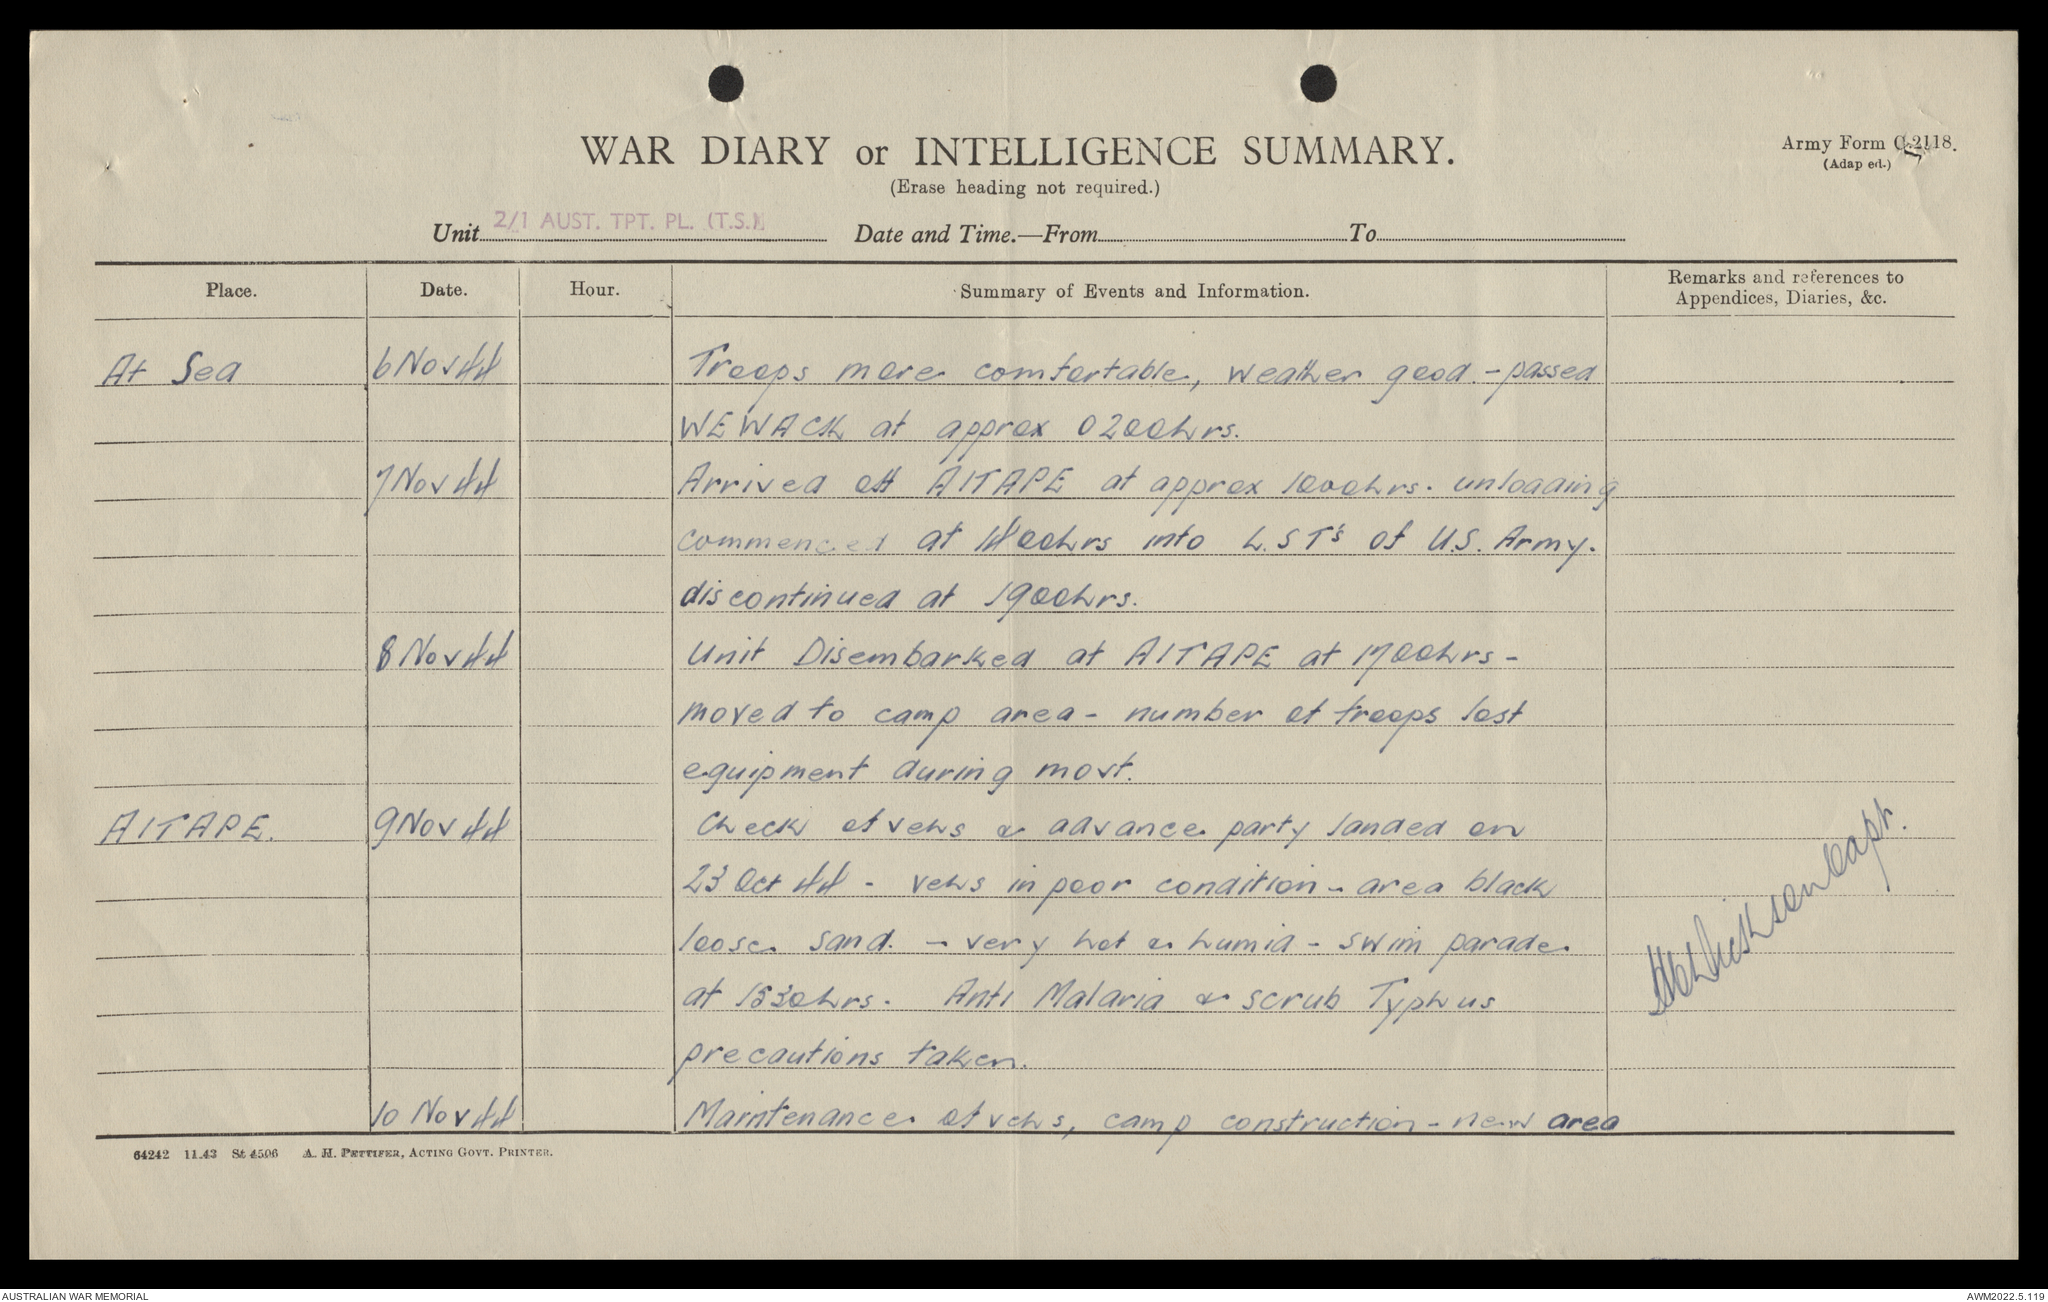 WAR DIARY or INTELLIGENCE SUMMARY.
Army Form C.2118.
(Adap ed.)
(Erase heading not required.)
Unit 2/1 AUST. TPT. PL. (T.S.) Date and Time.—From To
Place. Date. Hour. Summary of Events and Information. Remarks and references to Appendices, Diaries, &c.
At Sea 6 Nov 44 Troops more comfortable, weather good. - passed
WEWACK at approx 0200hrs.
7 Nov 44 Arrived off AITAPE at approx 1000hrs. unloading
commenced at 1400hrs into L.ST's of U.S. Army.
discontinued at 1900hrs.
8 Nov 44 Unit Disembarked at AITAPE at 1700hrs -
moved to camp area - number of troops lost
equipment during movt.
AITAPE. 9 Nov 44 Check of vehs & advance party landed on
23 Oct 44 - vehs in poor condition - area black
loose sand. - very hot & humid - swim parade
at 1530hrs. Anti Malaria & scrub Typhus
precautions taken.
Capt.
10 Nov 44 Maintenance of vehs, camp construction - new area
64242 11.43 St 4506 A. H. PETTIFER, ACTING GOVT. PRINTER.
AUSTRALIAN WAR MEMORIAL
AWM2022.5.119